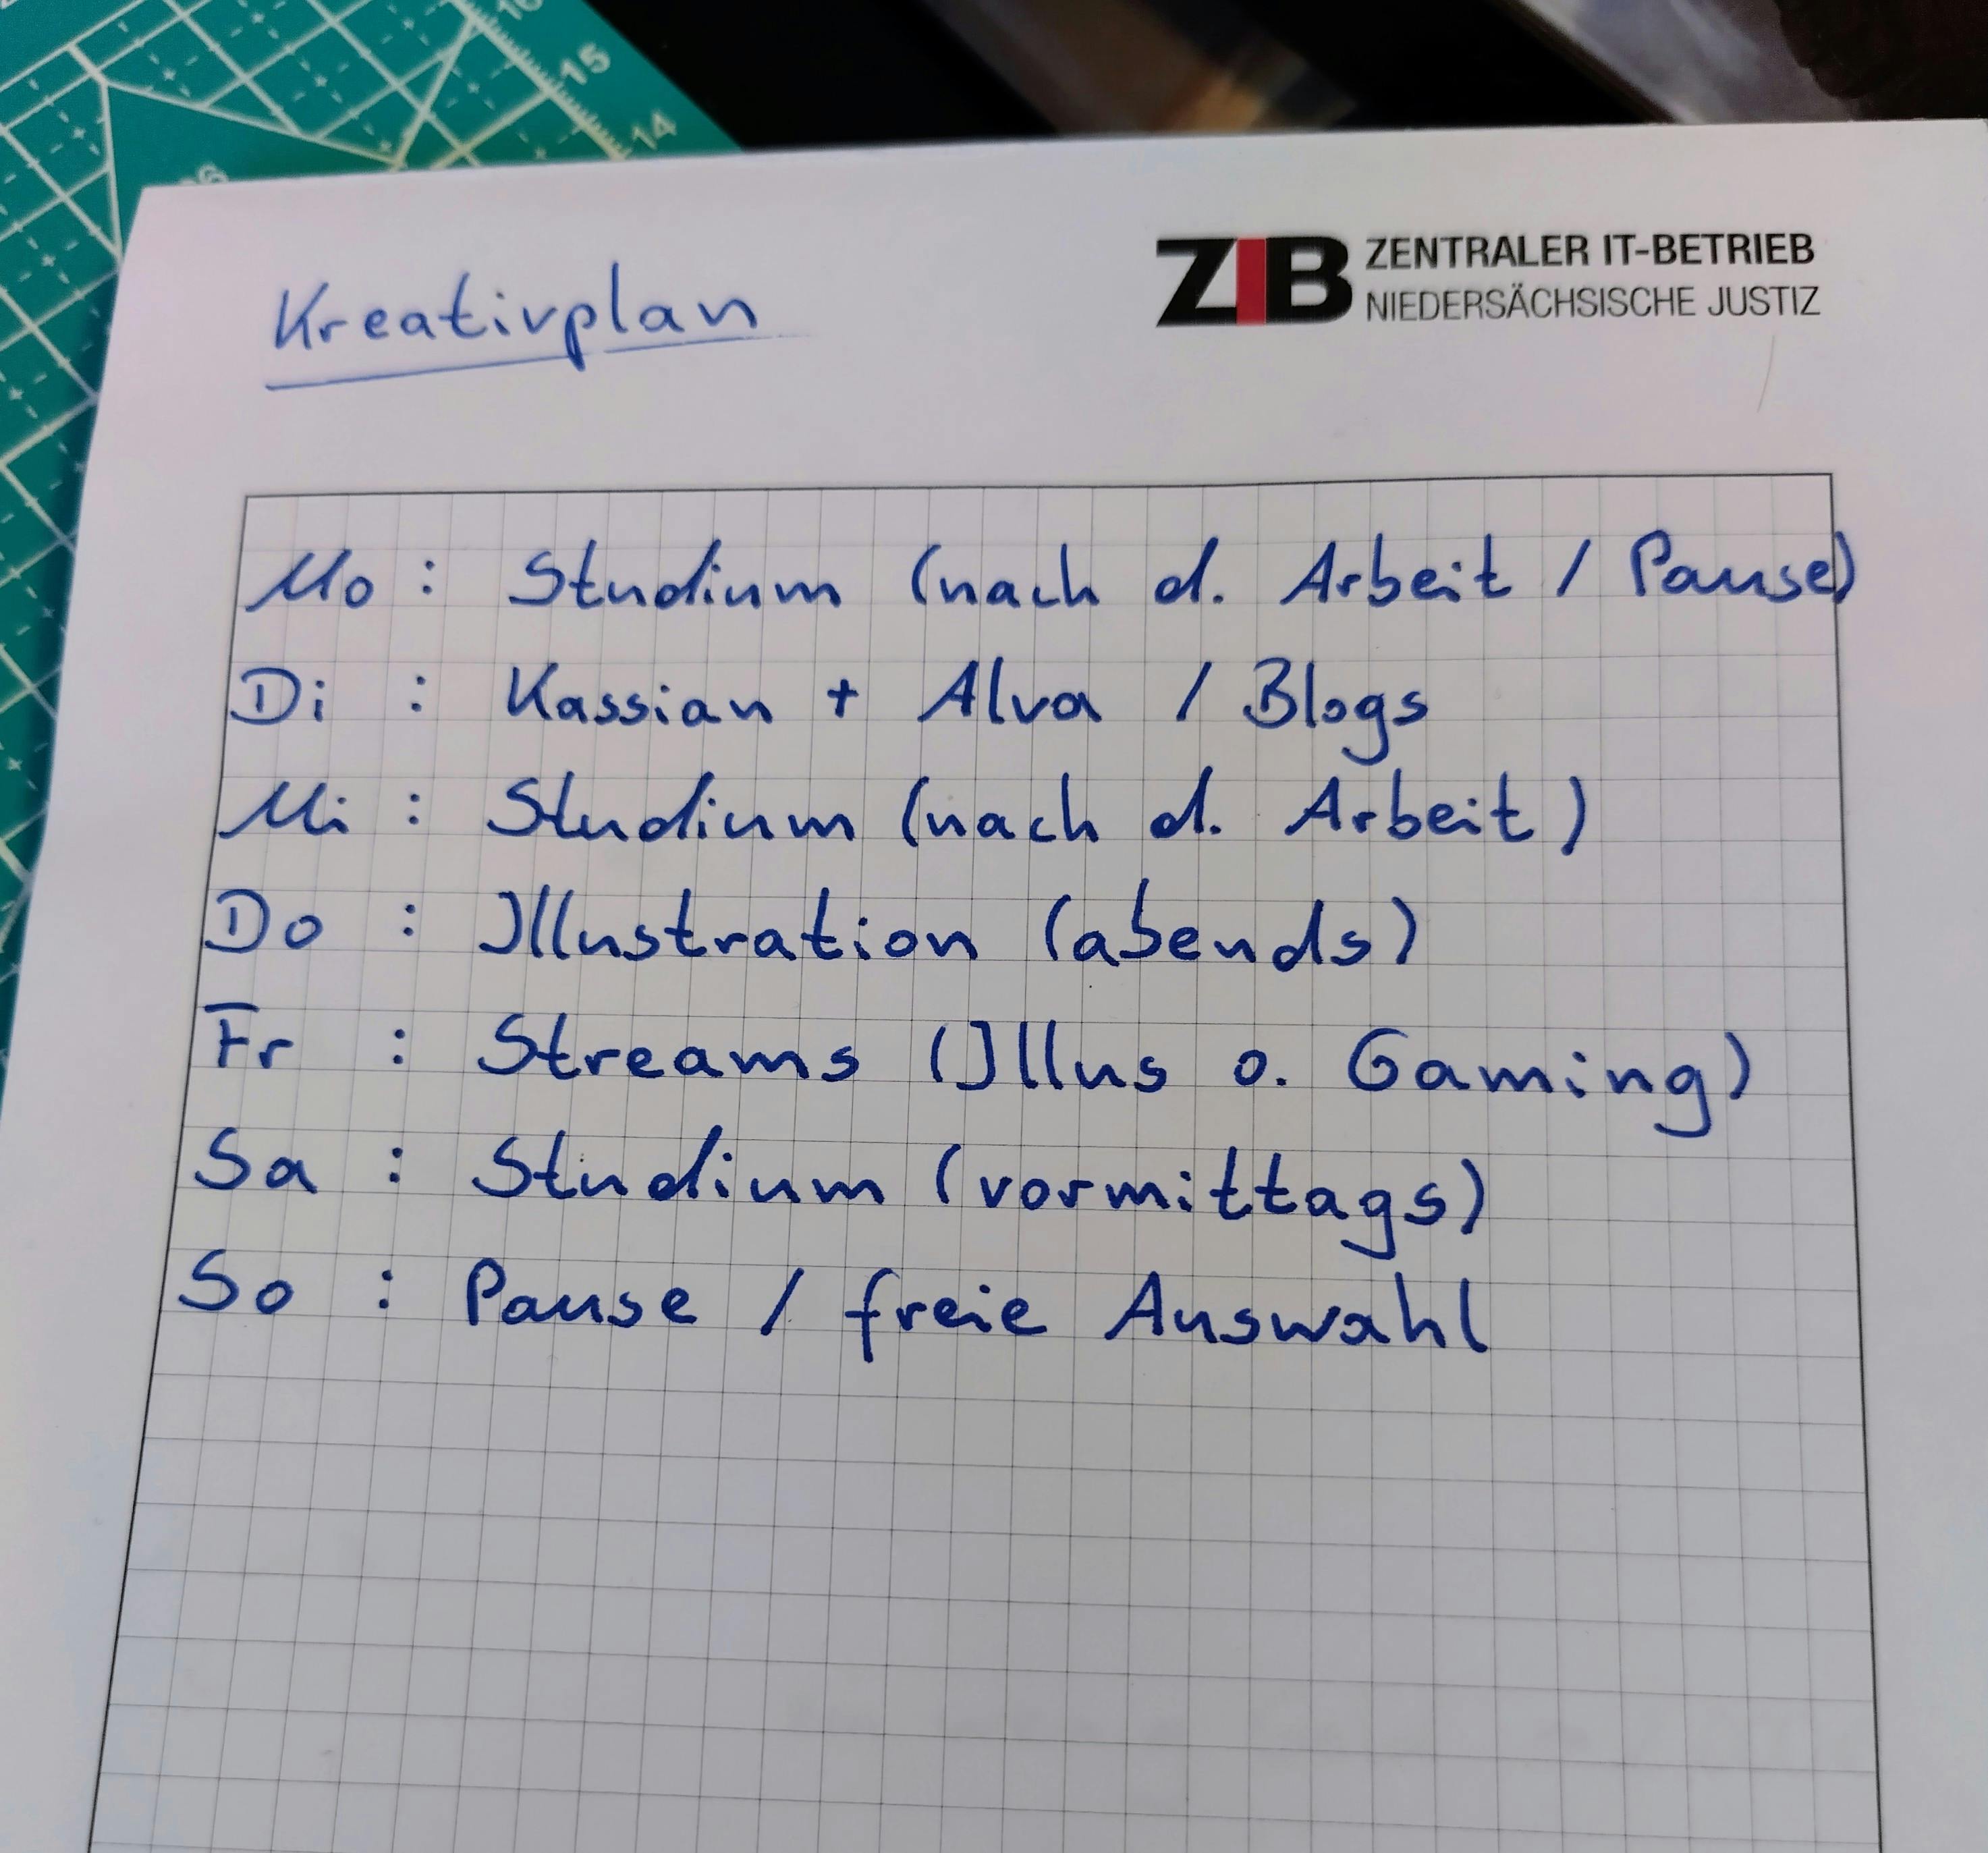 16
15
14
Kreativplan
ZIB ZENTRALER IT-BETRIEB
NIEDERSÄCHSISCHE JUSTIZ
Mo : Studium (nach d. Arbeit / Pause)
Di : Kassian + Alva / Blogs
Mi : Studium (nach d. Arbeit)
Do : Illustration (abends)
Fr : Streams (Illus o. Gaming)
Sa : Studium (vormittags)
So : Pause / freie Auswahl